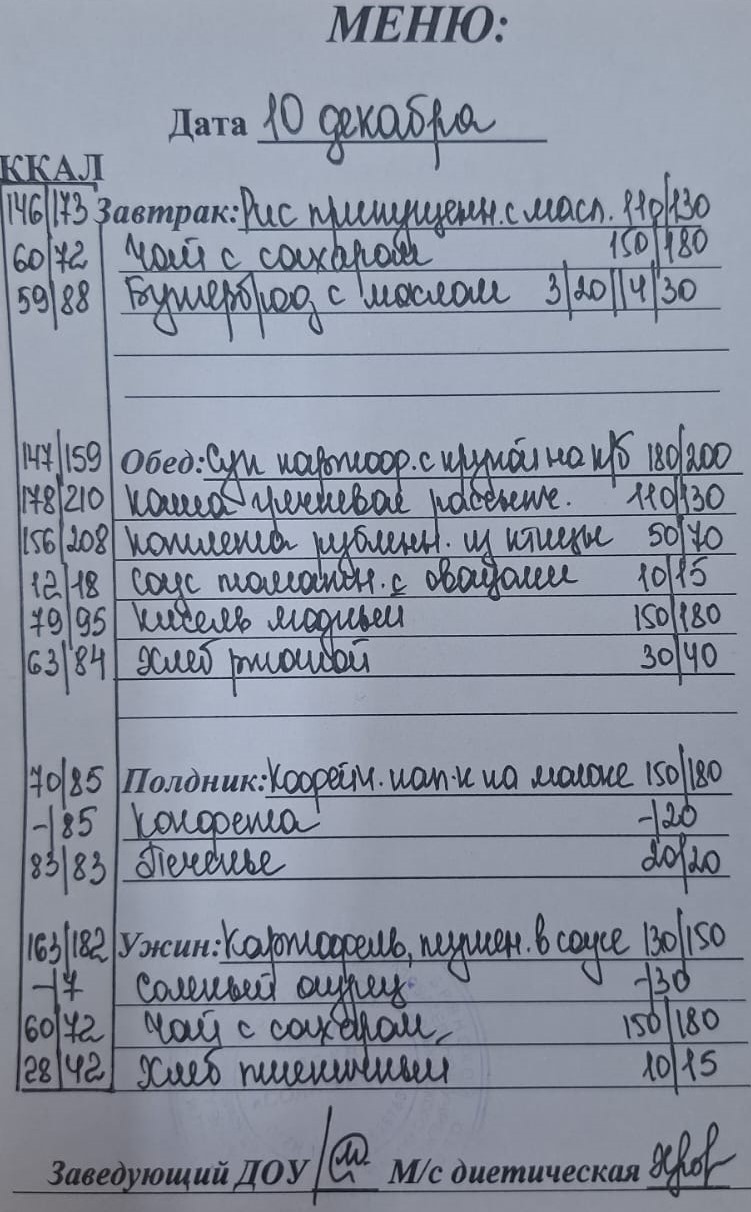 МЕНЮ:
Дата 10 декабря
ККАЛ
146/173 Завтрак: Рис припущенн. с масл. 110/130
60/72 Чай с сахаром 150/180
59/88 Бутерброд с маслом 3/20//4/30
147/159 Обед: Суп картоф. с крупой на к/б 180/200
178/210 Каша гречневая рассыпч. 110/130
156/208 Котлета рублен. из птицы 50/70
12/18 Соус томатн. с овощами 10/15
79/95 Кисель модный 150/180
63/84 Хлеб ржаной 30/40
70/85 Полдник: Кофейн. нап-к на молоке 150/180
-/85 Конфета -/20
83/83 Печенье 20/20
163/182 Ужин: Картофель, тушен. в соусе 130/150
-/7 Соленый огурец -/30
60/72 Чай с сахаром 150/180
28/42 Хлеб пшеничный 10/15
Заведующий ДОУ М/с диетическая